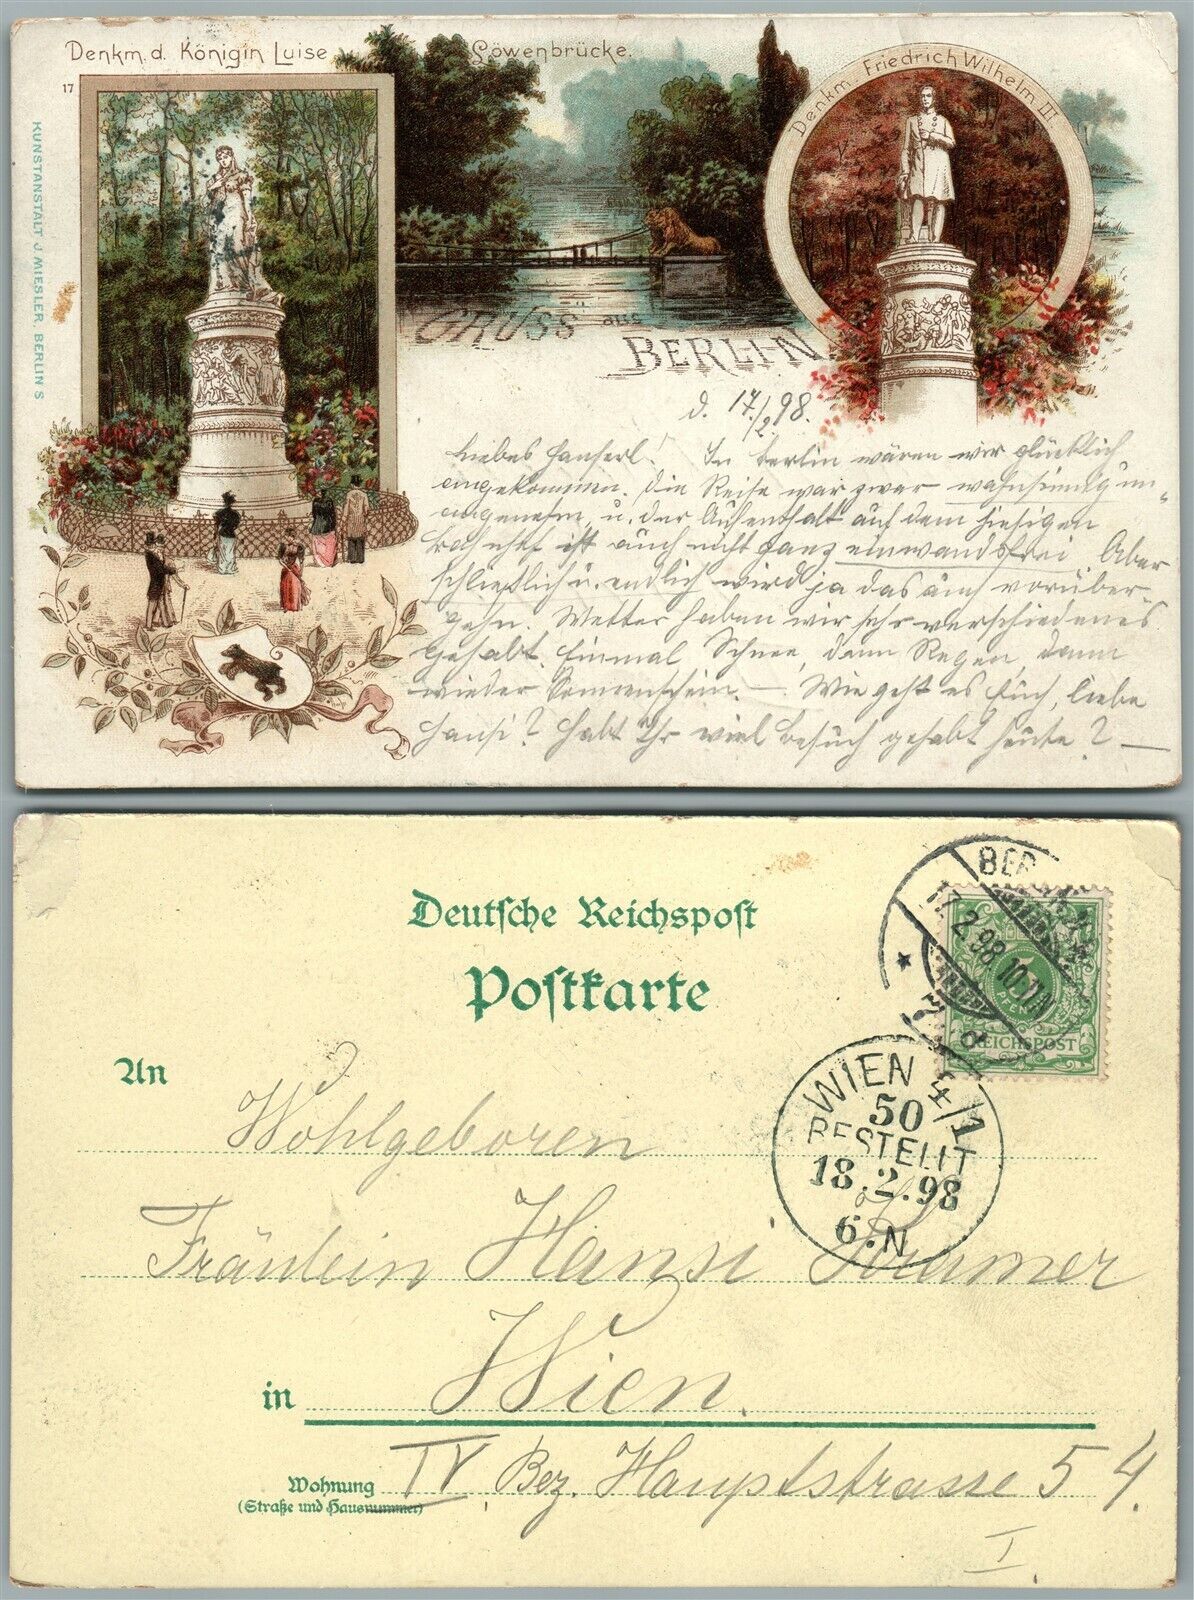 Denkm. d. Königin Luise
Löwenbrücke.
Denkm. Friedrich Wilhelm III.
17
KUNSTANSTALT J. MIESLER, BERLIN S
GRUSS aus
BERLIN
d. 17./2. 98.
Liebes Hanserl! In Berlin wären wir glücklich
angekommen. Die Reise war zwar wahnsinnig un-
angenehm, u. der Aufenthalt auf dem hiesigen
ist auch nicht ganz einwandsfrei. Aber
schließlich u. endlich wird ja das auch vorüber
gehn. Wetter haben wir sehr verschiedenes
gehabt. Einmal Schnee, dann Regen, dann
wieder Sonnenschein. — Wie geht es Euch, liebe
Hansi? Habt Ihr viel Besuch gehabt heute? —
Deutsche Reichspost
Postkarte
BER
17.2.98.10-11N
5
PFENNIG
REICHSPOST
WIEN 4/1
50
BESTELLT
18.2.98
6.N
An
Wohlgeboren
Fräulein Hansi Kramer
in Wien.
Wohnung IV. Bez. Hauptstrasse 54.
(Straße und Hausnummer)
I